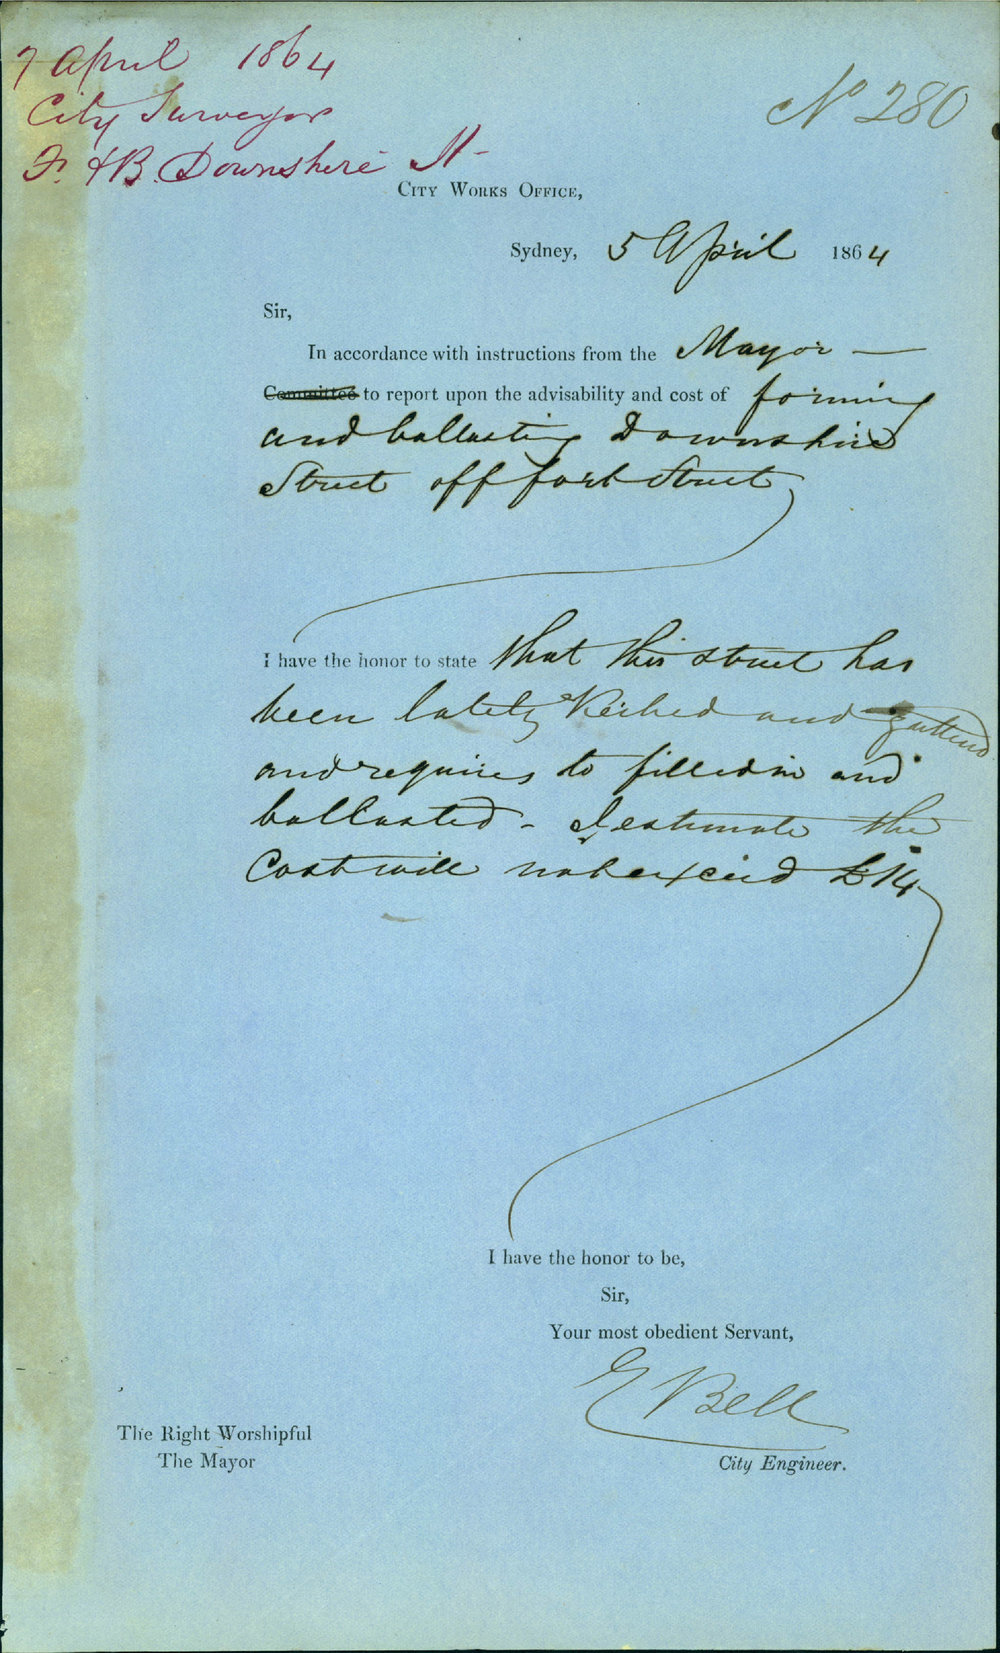 7 April 1864
City Surveyor
F. & B. Downshire St
No 280
City Works Office,
Sydney, 5 April 1864
Sir,
In accordance with instructions from the Mayor —
Committee to report upon the advisability and cost of forming
and ballasting Downshire
Street off fort Street
I have the honor to state that this street has
been lately Kerbed and guttered
and requires to filled in and
ballasted - I estimate the
Cost will not exceed £14
I have the honor to be,
Sir,
Your most obedient Servant,
E Bell
City Engineer.
The Right Worshipful
The Mayor